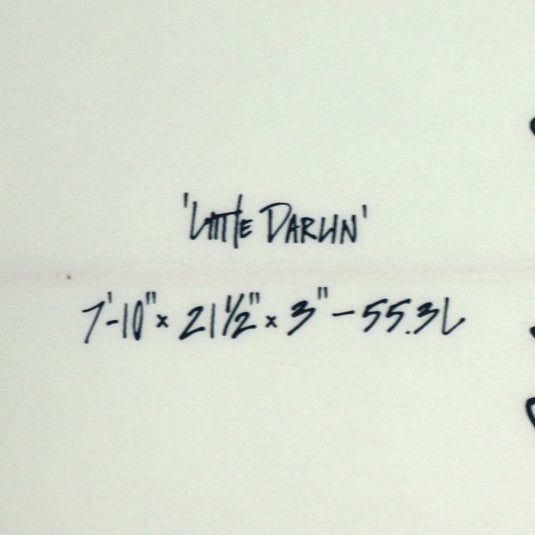 'LITTLE DARLIN'
7'-10" x 21 1/2" x 3" - 55.3L